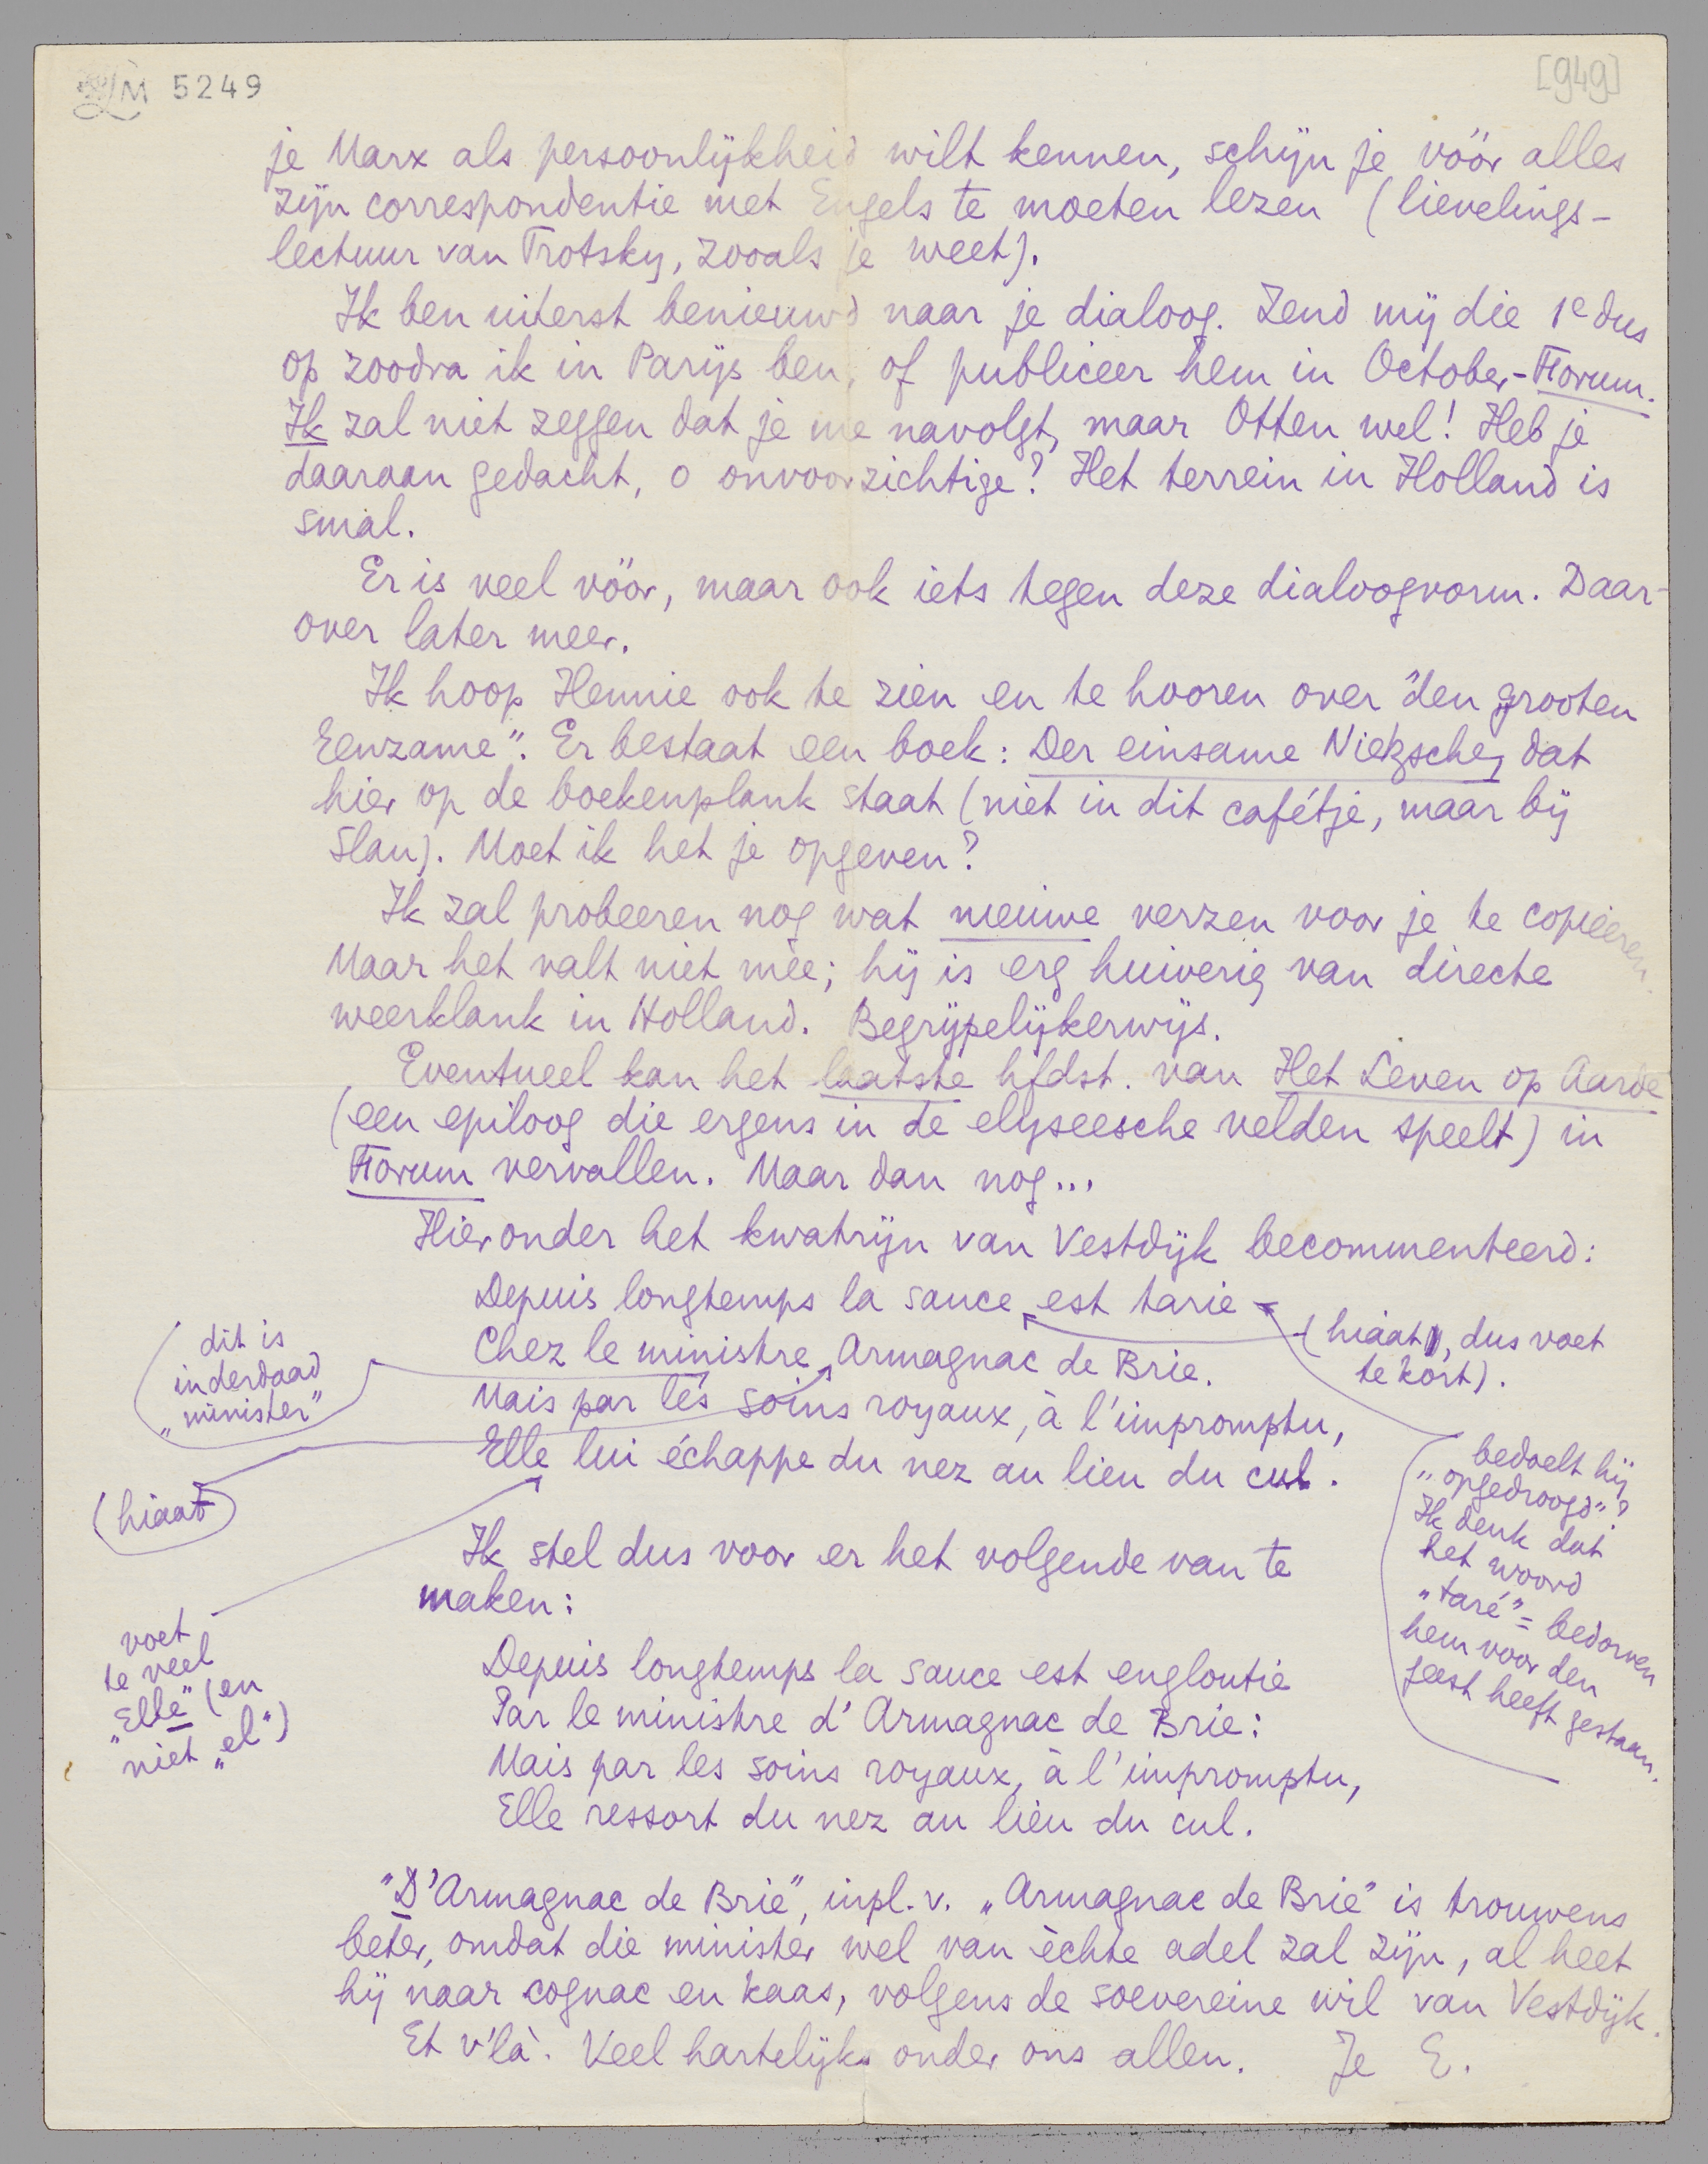 LM 5249
[949]
je Marx als persoonlijkheid wilt kennen, schijn je vóór alles
zijn correspondentie met Engels te moeten lezen (lievelings-
lectuur van Trotsky, zooals je weet).
Ik ben uiterst benieuwd naar je dialoog. Zend mij die 1e dus
op zoodra ik in Parijs ben, of publiceer hem in October-Forum.
Ik zal niet zeggen dat je me navolgt, maar Otten wel! Heb je
daaraan gedacht, o onvoorzichtige? Het terrein in Holland is
smal.
Er is veel vóór, maar ook iets tegen deze dialoogvorm. Daar-
over later meer.
Ik hoop Hennie ook te zien en te hooren over "den grooten
Eenzame". Er bestaat een boek: Der einsame Nietzsche, dat
hier op de boekenplank staat (niet in dit cafétje, maar bij
Slau). Moet ik het je opgeven?
Ik zal probeeren nog wat nieuwe verzen voor je te copieeren.
Maar het valt niet mèe; hij is erg huiverig van directe
weerklank in Holland. Begrijpelijkerwijs.
Eventueel kan het laatste hfdst. van Het Leven op Aarde
(een epiloog die ergens in de elyseesche velden speelt) in
Forum vervallen. Maar dan nog...
Hieronder het kwatrijn van Vestdijk becommenteerd:
Depuis longtemps la sauce est tarie
Chez le ministre Armagnac de Brie.
Mais par les soins royaux, à l'impromptu,
Elle lui échappe du nez au lieu du cul.
(hiaat, dus voet
te kort).
dit is
inderdaad
„minister"
(hiaat)
voet
te veel
„Elle" (en
niet „el")
bedoelt hij
„opgedroogd"?
Ik denk dat
het woord
„taré" = bedorven
hem voor den
geest heeft gestaan.
Ik stel dus voor er het volgende van te
maken:
Depuis longtemps la sauce est engloutie
Par le ministre d'Armagnac de Brie:
Mais par les soins royaux, à l'impromptu,
Elle ressort du nez au lieu du cul.
"D'Armagnac de Brie", inpl. v. „Armagnac de Brie" is trouwens
beter, omdat die minister wel van èchte adel zal zijn, al heet
hij naar cognac en kaas, volgens de soevereine wil van Vestdijk.
Et v'là. Veel hartelijks onder ons allen. Je E.